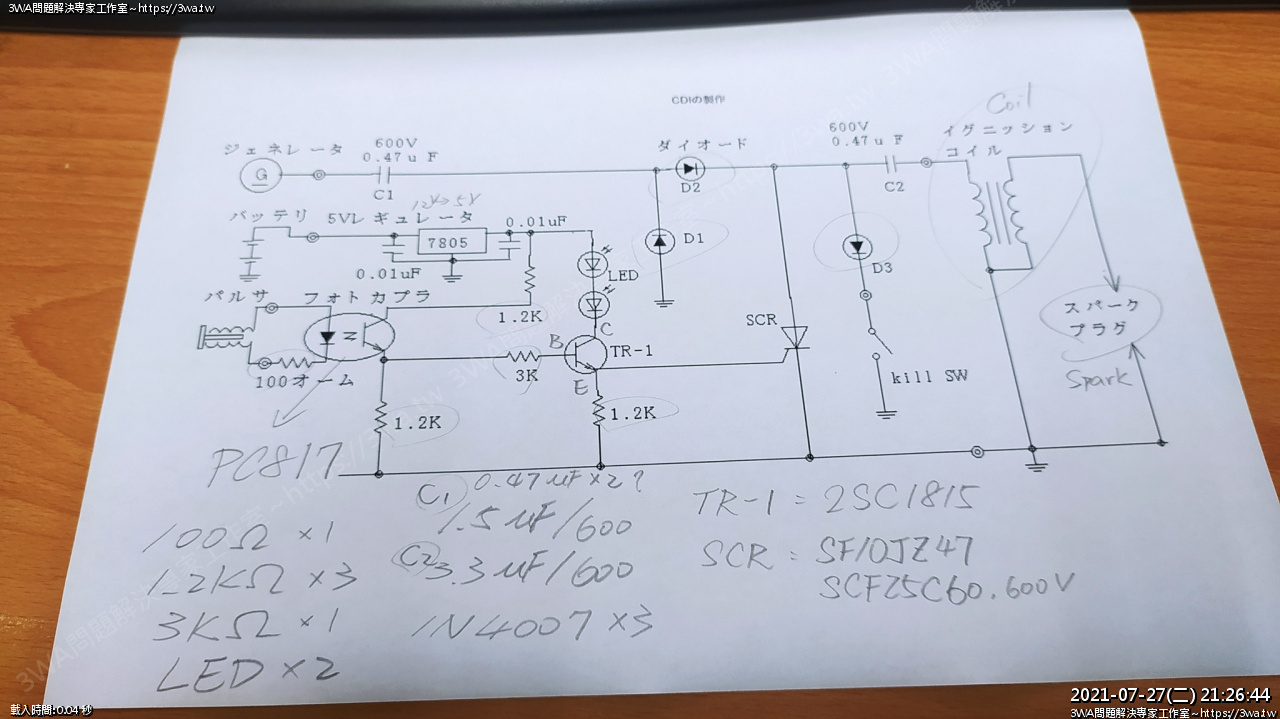 3WA問題解決專家工作室~https://3wa.tw
CDIの製作
Coil
ジェネレータ
600V
0.47uF
C1
G
ダイオード
D2
600V
0.47uF
C2
イグニッション
コイル
バッテリ
5Vレギュレータ
12V→5V
7805
0.01uF
0.01uF
LED
D1
D3
パルサ
フォトカプラ
1.2K
SCR
スパーク
プラグ
Spark
B
C
E
TR-1
3K
100オーム
kill SW
1.2K
1.2K
PC817
C1 0.47uF×2?
1.5uF/600
C2 3.3uF/600
1N4007×3
100Ω×1
1.2KΩ×3
3KΩ×1
LED×2
TR-1=2SC1815
SCR: SF10JZ47
SCF25C60.600V
載入時間:0.04 秒
2021-07-27(二) 21:26:44
3WA問題解決專家工作室~https://3wa.tw